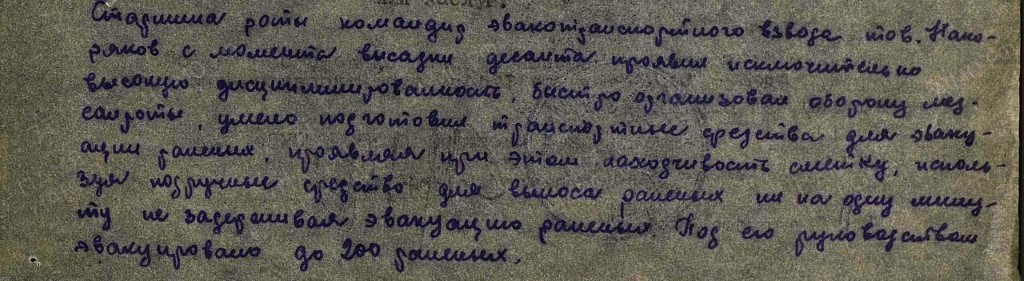 Старшина роты командир эвакотранспортного взвода тов. Нако-
ряков с момента высадки десанта проявил исключительно
высокую дисциплинированность, быстро организовал оборону мед-
санроты, умело подготовил транспортные средства для эваку-
ации раненых, проявляя при этом находчивость смётку, исполь-
зуя подручные средства для выноса раненых ни на одну мину-
ту не задерживая эвакуацию раненых. Под его руководством
эвакуировано до 200 раненых.